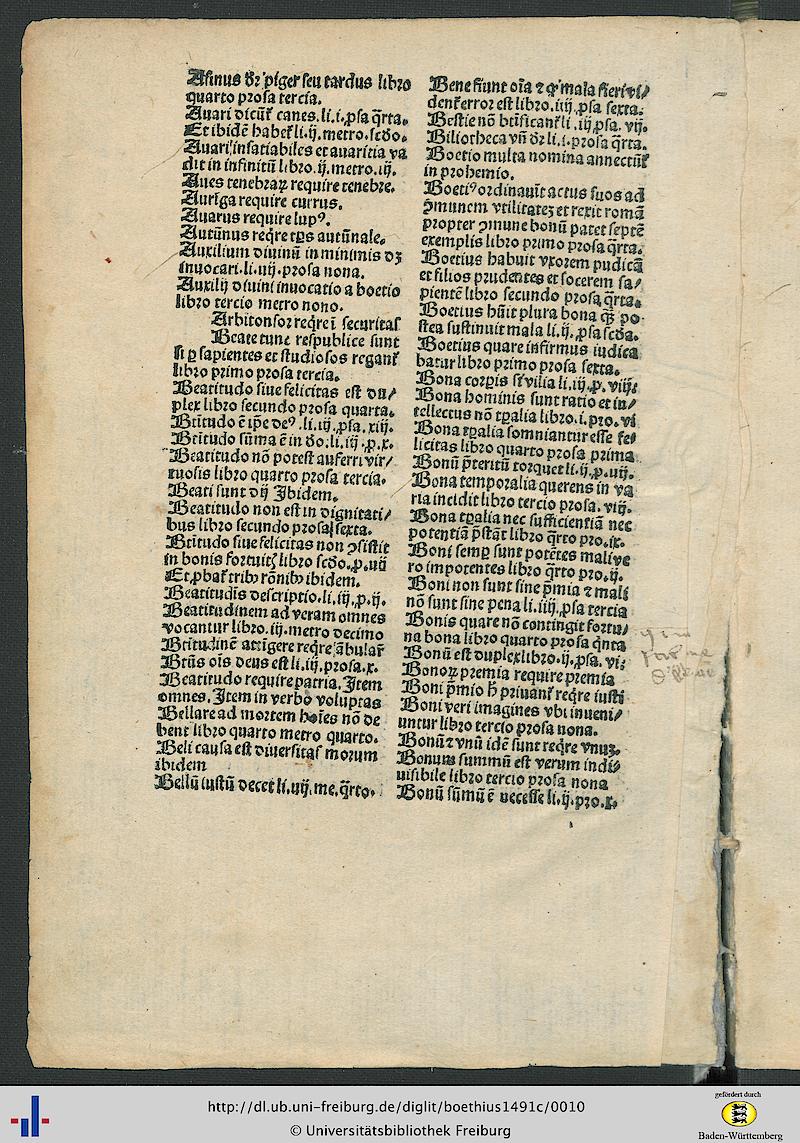 Asinus dr̄ piger seu tardus libro
quarto prosa tercia.
Auari dicūt᷑ canes. li. i. ꝓsa q̄rta.
Et ibidē habet᷑ li. ij. metro. scďo.
Auari insatiabiles et auaritia va
dit in infinitū libro. ij. metro. ij.
Aues tenebraꝝ require tenebre.
Auriga require currus.
Auarus require lupꝰ.
Autūnus reqͥre tp̄s autūnale.
Auxilium diuinū in minimis dꝫ
inuocari. li. iij. prosa nona.
Auxilij diuini inuocatio a boetio
libro tercio metro nono.
Arbitonsor reqͥre ī securitas
Beate tunc respublice sunt
si ꝑ sapientes et studiosos regant᷑
libro primo prosa tercia.
Beatitudo siue felicitas est du/
plex libro secundo prosa quarta.
Btītudo ē ip̄e deꝰ. li. iij. ꝓsa. xij.
Btītudo sūma ē in ďo. li. iij. p. x.
Beatitudo nō potest auferri vir/
tuosis libro quarto prosa tercia.
Beati sunt dij Ibidem.
Beatitudo non est in dignitati/
bus libro secundo prosa sexta.
Btītudo siue felicitas non ꝯsistit
in bonis fortuitꝭ libro scďo. p. iiij
Et ꝓbat᷑ tribꝰ rōnibꝰ ibidem.
Beatitudīs descriptio. li. iij. p. ij.
Beatitudinem ad veram omnes
vocantur libro. iij. metro decimo
Btītudinē attīgere reqͥre ābular᷑
Btūs oīs deus est li. iij. prosa. x.
Beatitudo require patria. Item
omnes. Item in verbo voluptas
Bellare ad mortem hoīes nō de
bent libro quarto metro quarto.
Beli causa est diuersitas morum
ibidem
Bellū iustū decet li. iiij. me. q̄rto.
Bene fiunt oīa ⁊ qͥ mala fieri vi/
dent᷑ error est libro. iiij. ꝓsa sexta.
Bestie nō btīficant᷑ li. iij. ꝓsa. vij.
Biliotheca vn̄ dr̄ li. i. prosa q̄rta.
Boetio multa nomina annectūt᷑
in prohemio.
Boetiꝰ ordinauit actus suos ad
ꝯmunem vtilitatem et rexit romā
propter ꝯmune bonū patet septē
exemplis libro primo prosa q̄rta.
Boetius habuit vxorem pudicā
et filios prudentes et socerem sa/
pientē libro secundo prosa q̄rta.
Boetius hūit plura bona qͣꝫ po
stea sustinuit mala li. ij. ꝓsa scďa.
Boetius quare infirmus iudica
batur libro primo prosa sexta.
Bona corpis sūt vilia li. iij. p. viij.
Bona hominis sunt ratio et in/
tellectus nō tꝑalia libro. i. pro. vi
Bona tꝑalia somniantur esse fe/
licitas libro quarto prosa prima
Bonū p̄teritū torquet li. ij. p. iiij.
Bona temporalia querens in va
ria incidit libro tercio prosa. viij.
Bona tꝑalia nec sufficientiā nec
potentiā p̄stāt libro q̄rto pro. ix.
Boni semꝑ sunt potētes mali ve
ro impotentes libro q̄rto pro. ij.
Boni non sunt sine p̄mia ⁊ mali
nō sunt sine pena li. iiij. ꝓsa tercia
Bonis quare nō contingit fortu/
na bona libro quarto prosa qͥnta
Bonū est duplex libro. ij. ꝓsa. vi.
Bonoꝝ premia require premia
Boni p̄mio hͦ priuant᷑ reqͥre iusti
Boni veri imagines vbi inueni/
untur libro tercio prosa nona.
Bonū ⁊ vnū idē sunt reqͥre vnuꝫ.
Bonum summū est verum indi/
uisibile libro tercio prosa nona
Bonū sūmū ē necesse li. ij. pro. x.
http://dl.ub.uni-freiburg.de/diglit/boethius1491c/0010
© Universitätsbibliothek Freiburg
gefördert durch
Baden-Württemberg